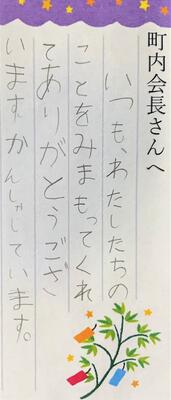 町内会長さんへ
いつも、わたしたちの
ことをみまもってくれ
てありがとうござ
います。かんしゃしています。